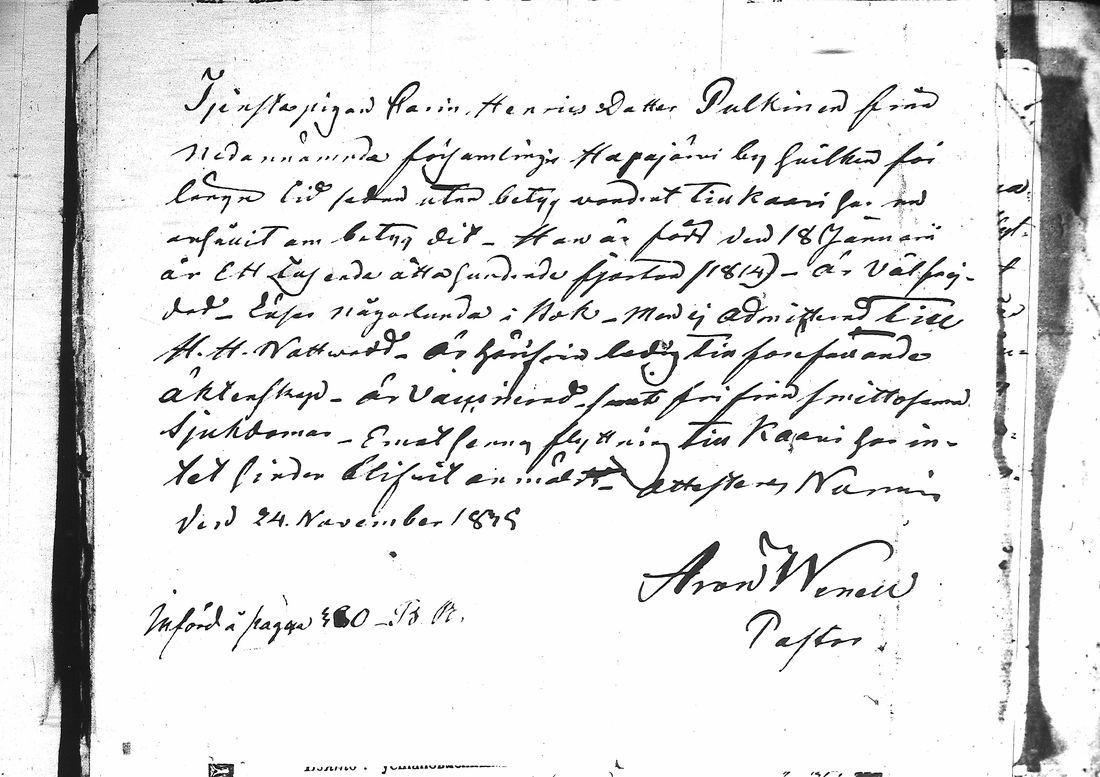 Tjenstepigan Carin Henrics Datter Pulkinen från
Nedannämnda församlings Hapajärvi by hvilken för
långe tid sedan utan betyg vandrat till Kaavi har nu
anhållit om betyg dit - Hon är född den 18 Januarii
år Ett Tusende åtta hundrade fjorton (1814) - är Välfrej-
dad - Läser någorlunda i Bok - Men ej admitterad till
H. H. Nattward - är härifrån ledig till förefallande
äktenskap - är Vaccinerad - samt fri från smittosamma
Sjukdomar - Emot henns flyttning till Kaavi har in-
tet hinder blifvit anmält - Attesteras Nurmis
den 24. November
Aron Wenell
Pastor
Införd å pagina B. R.